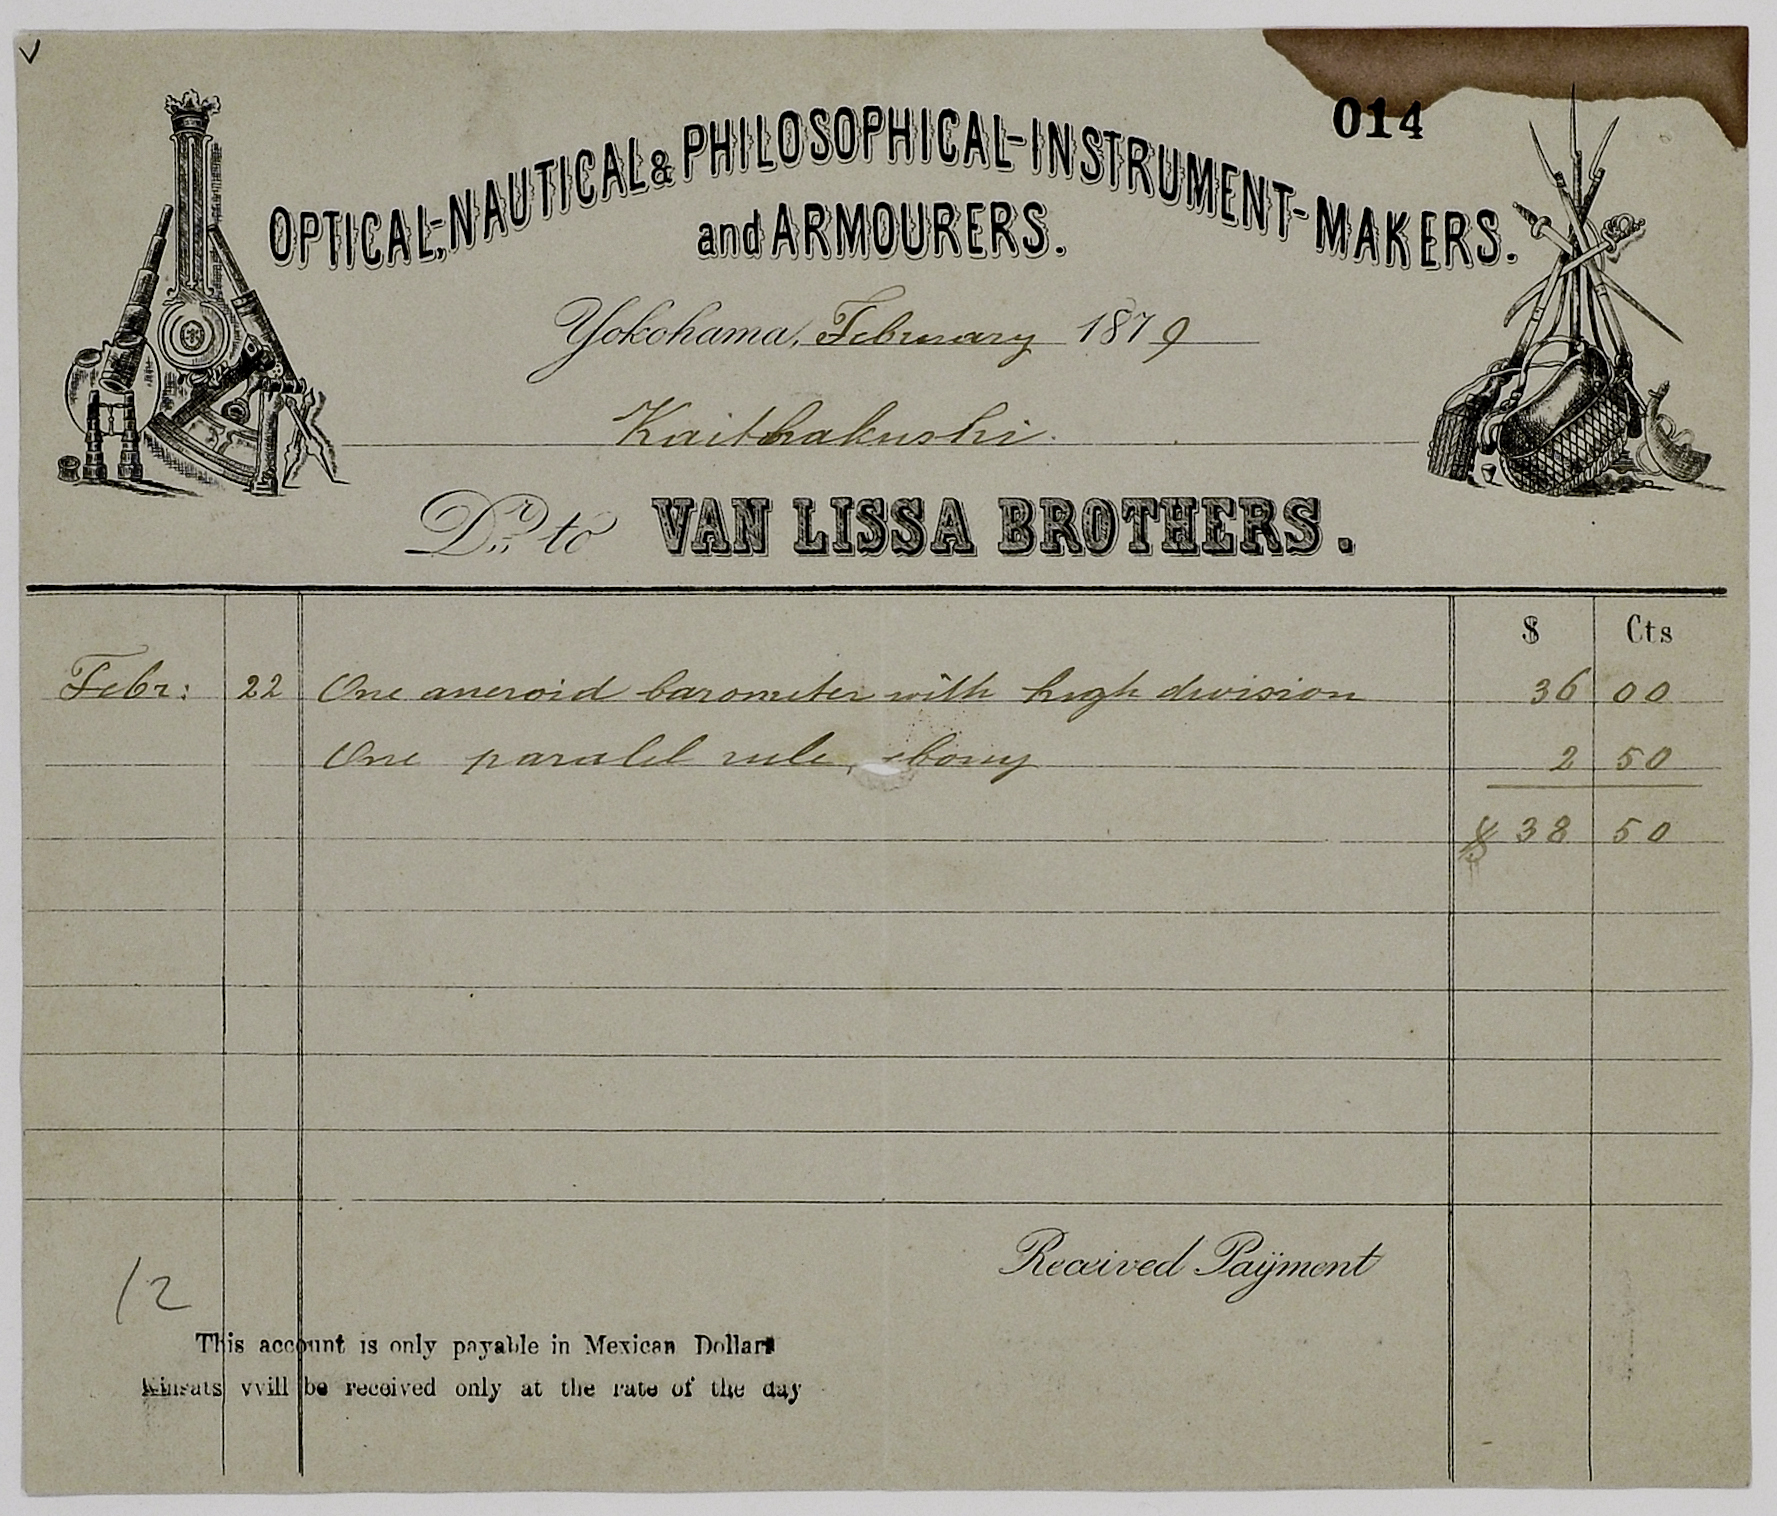 V
014
OPTICAL,-NAUTICAL & PHILOSOPHICAL-INSTRUMENT-MAKERS.
and ARMOURERS.
Yokohama, February 1879
Kaithakushi.
Dr. to VAN LISSA BROTHERS.
$ Cts
Febr: 22 One aneroid barometer with high division 36 00
One paralel rule, ebony 2 50
$ 38 50
Received Payment
12
This account is only payable in Mexican Dollars
Kinsats vvill be received only at the rate of the day